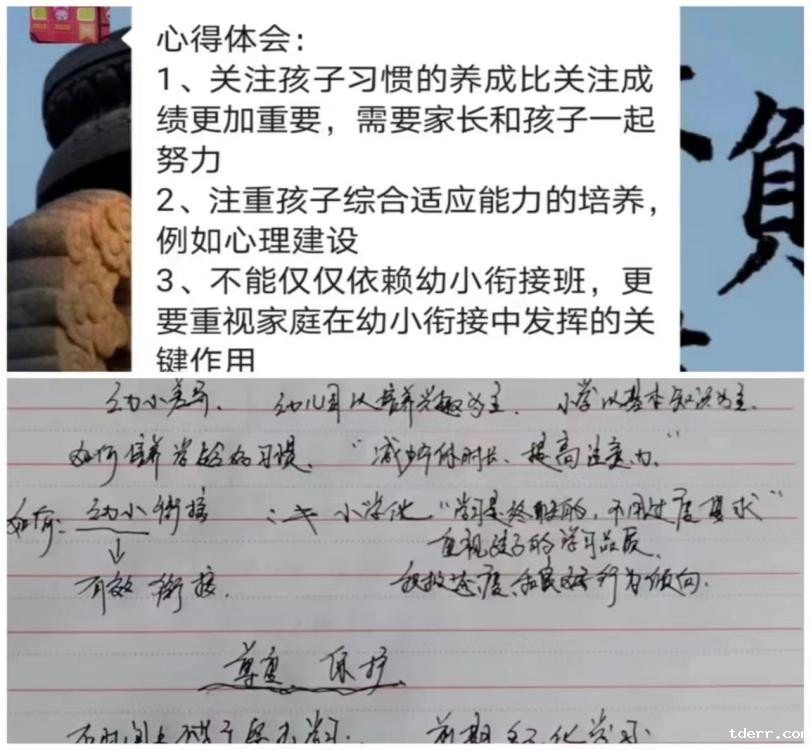 心得体会：
1、关注孩子习惯的养成比关注成
绩更加重要，需要家长和孩子一起
努力
2、注重孩子综合适应能力的培养，
例如心理建设
3、不能仅仅依赖幼小衔接班，更
要重视家庭在幼小衔接中发挥的关
键作用
負
幼小差异. 幼儿园以培养兴趣为主. 小学以基本知识为主.
如何培养学龄的习惯. "减少作时长、提高注意力."
如何: 幼小衔接 : ≠ 小学化 "学习是终身的, 不用过度要求"
重视孩子的学习品质.
有效衔接. 积极态度和良好行为倾向.
尊重 保护
tderr.com